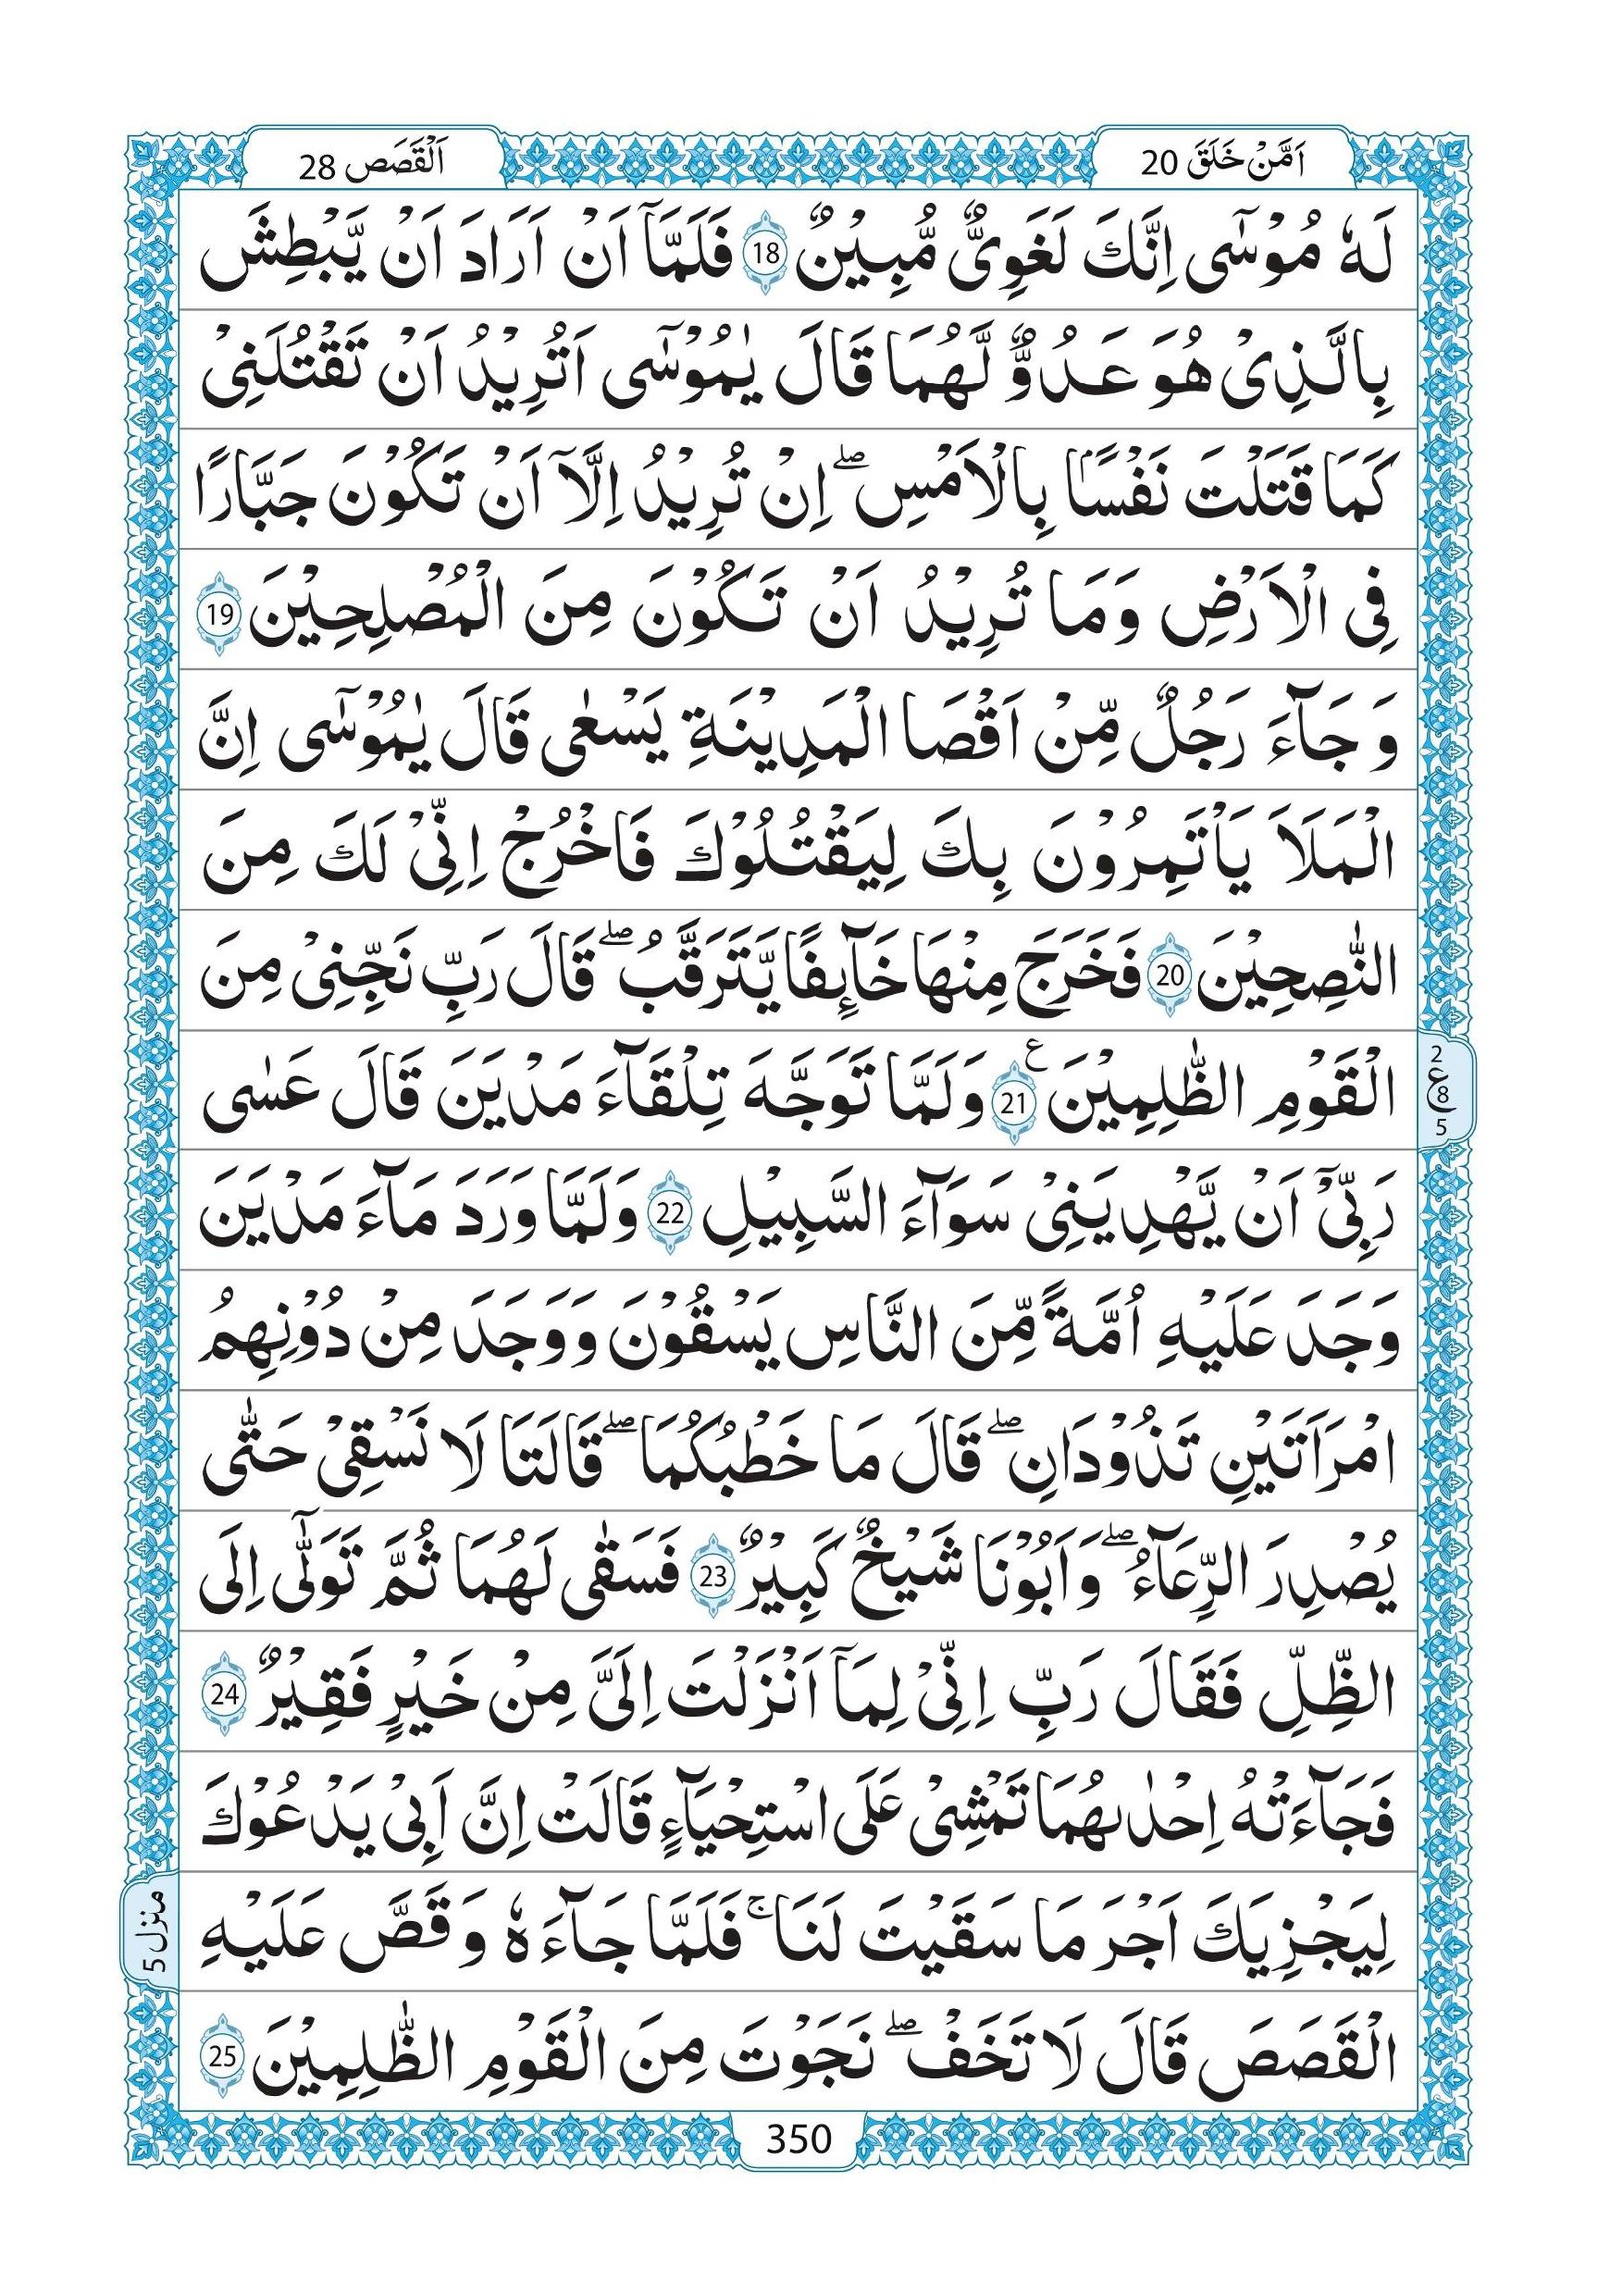 اَمَّنْ خَلَقَ 20
اَلْقَصَص 28
لَهٗ مُوْسٰۤى اِنَّكَ لَغَوِىٌّ مُّبِيْنٌ 18 فَلَمَّاۤ اَنْ اَرَادَ اَنْ يَّبْطِشَ
بِالَّذِىْ هُوَ عَدُوٌّ لَّهُمَا قَالَ يٰمُوْسٰۤى اَتُرِيْدُ اَنْ تَقْتُلَنِىْ
كَمَا قَتَلْتَ نَفْسًاۢ بِالْاَمْسِ ۖ اِنْ تُرِيْدُ اِلَّاۤ اَنْ تَكُوْنَ جَبَّارًا
فِى الْاَرْضِ وَمَا تُرِيْدُ اَنْ تَكُوْنَ مِنَ الْمُصْلِحِيْنَ 19
وَ جَآءَ رَجُلٌ مِّنْ اَقْصَا الْمَدِيْنَةِ يَسْعٰى قَالَ يٰمُوْسٰۤى اِنَّ
الْمَلَاَ يَاْتَمِرُوْنَ بِكَ لِيَقْتُلُوْكَ فَاخْرُجْ اِنِّىْ لَكَ مِنَ
النّٰصِحِيْنَ 20 فَخَرَجَ مِنْهَا خَآئِفًا يَّتَرَقَّبُ ۖ قَالَ رَبِّ نَجِّنِىْ مِنَ
الْقَوْمِ الظّٰلِمِيْنَ 21 ع وَلَمَّا تَوَجَّهَ تِلْقَآءَ مَدْيَنَ قَالَ عَسٰى
2
ع
8
5
رَبِّىْۤ اَنْ يَّهْدِيَنِىْ سَوَآءَ السَّبِيْلِ 22 وَلَمَّا وَرَدَ مَآءَ مَدْيَنَ
وَجَدَ عَلَيْهِ اُمَّةً مِّنَ النَّاسِ يَسْقُوْنَ وَوَجَدَ مِنْ دُوْنِهِمُ
امْرَاَتَيْنِ تَذُوْدَانِ ۖ قَالَ مَا خَطْبُكُمَا ۖ قَالَتَا لَا نَسْقِىْ حَتّٰى
يُصْدِرَ الرِّعَآءُ ۖ وَاَبُوْنَا شَيْخٌ كَبِيْرٌ 23 فَسَقٰى لَهُمَا ثُمَّ تَوَلّٰۤى اِلَى
الظِّلِّ فَقَالَ رَبِّ اِنِّىْ لِمَاۤ اَنْزَلْتَ اِلَىَّ مِنْ خَيْرٍ فَقِيْرٌ 24
فَجَآءَتْهُ اِحْدٰٮهُمَا تَمْشِىْ عَلَى اسْتِحْيَآءٍ قَالَتْ اِنَّ اَبِىْ يَدْعُوْكَ
لِيَجْزِيَكَ اَجْرَ مَا سَقَيْتَ لَنَا ۚ فَلَمَّا جَآءَهٗ وَ قَصَّ عَلَيْهِ
منزل 5
الْقَصَصَ قَالَ لَا تَخَفْ ۖ نَجَوْتَ مِنَ الْقَوْمِ الظّٰلِمِيْنَ 25
350